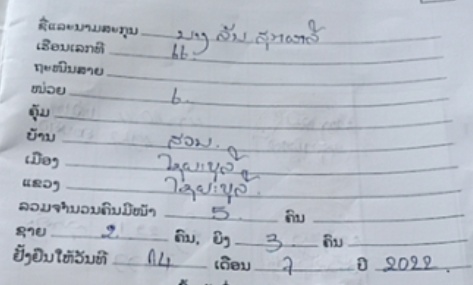 ຊື່ແລະນາມສະກຸນ ນາງ ລັນ ສຸກຜາລີ
ເຮືອນເລກທີ 66.
ຖະໜົນສາຍ
ໜ່ວຍ 6.
ຄຸ້ມ
ບ້ານ ສວນ.
ເມືອງ ໄຊຍະບູລີ
ແຂວງ ໄຊຍະບູລີ.
ລວມຈຳນວນຄົນມີໜ້າ 5 ຄົນ
ຊາຍ 2 ຄົນ, ຍິງ 3 ຄົນ
ຢັ້ງຢືນໃຫ້ວັນທີ 14 ເດືອນ 7 ປີ 2022.